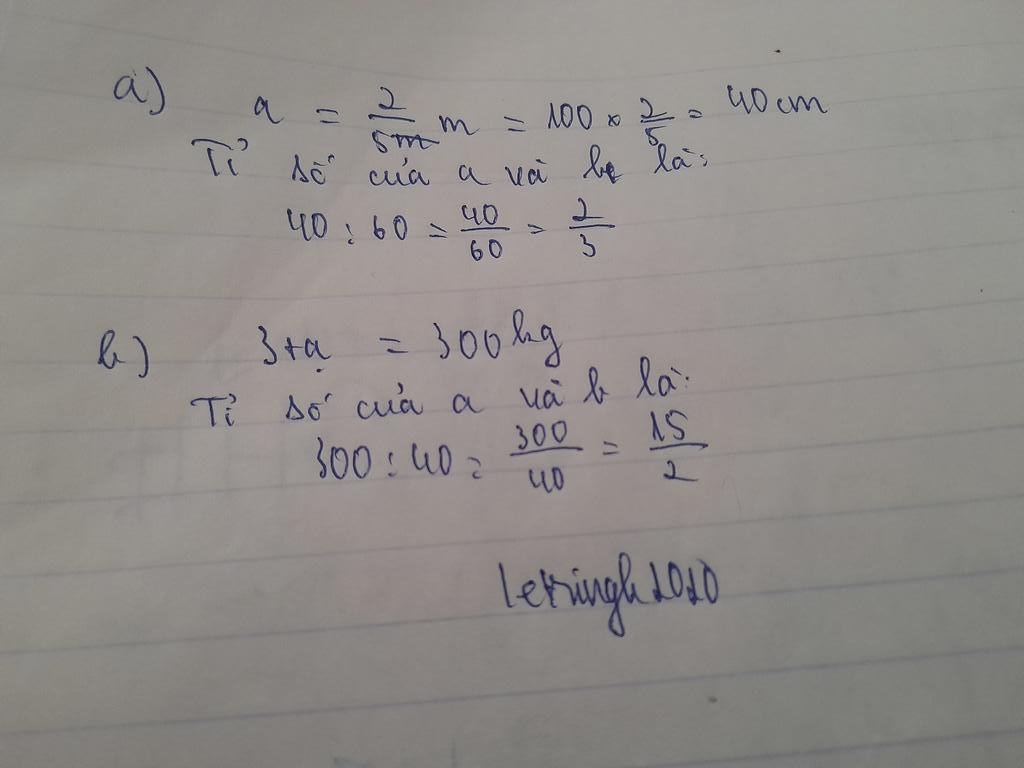 a) a = 2/5 m = 100 × 2/5 = 40 cm
Tỉ số của a và b là:
40 : 60 = 40/60 = 2/3
b) 3 tạ = 300 kg
Tỉ số của a và b là:
300 : 40 = 300/40 = 15/2